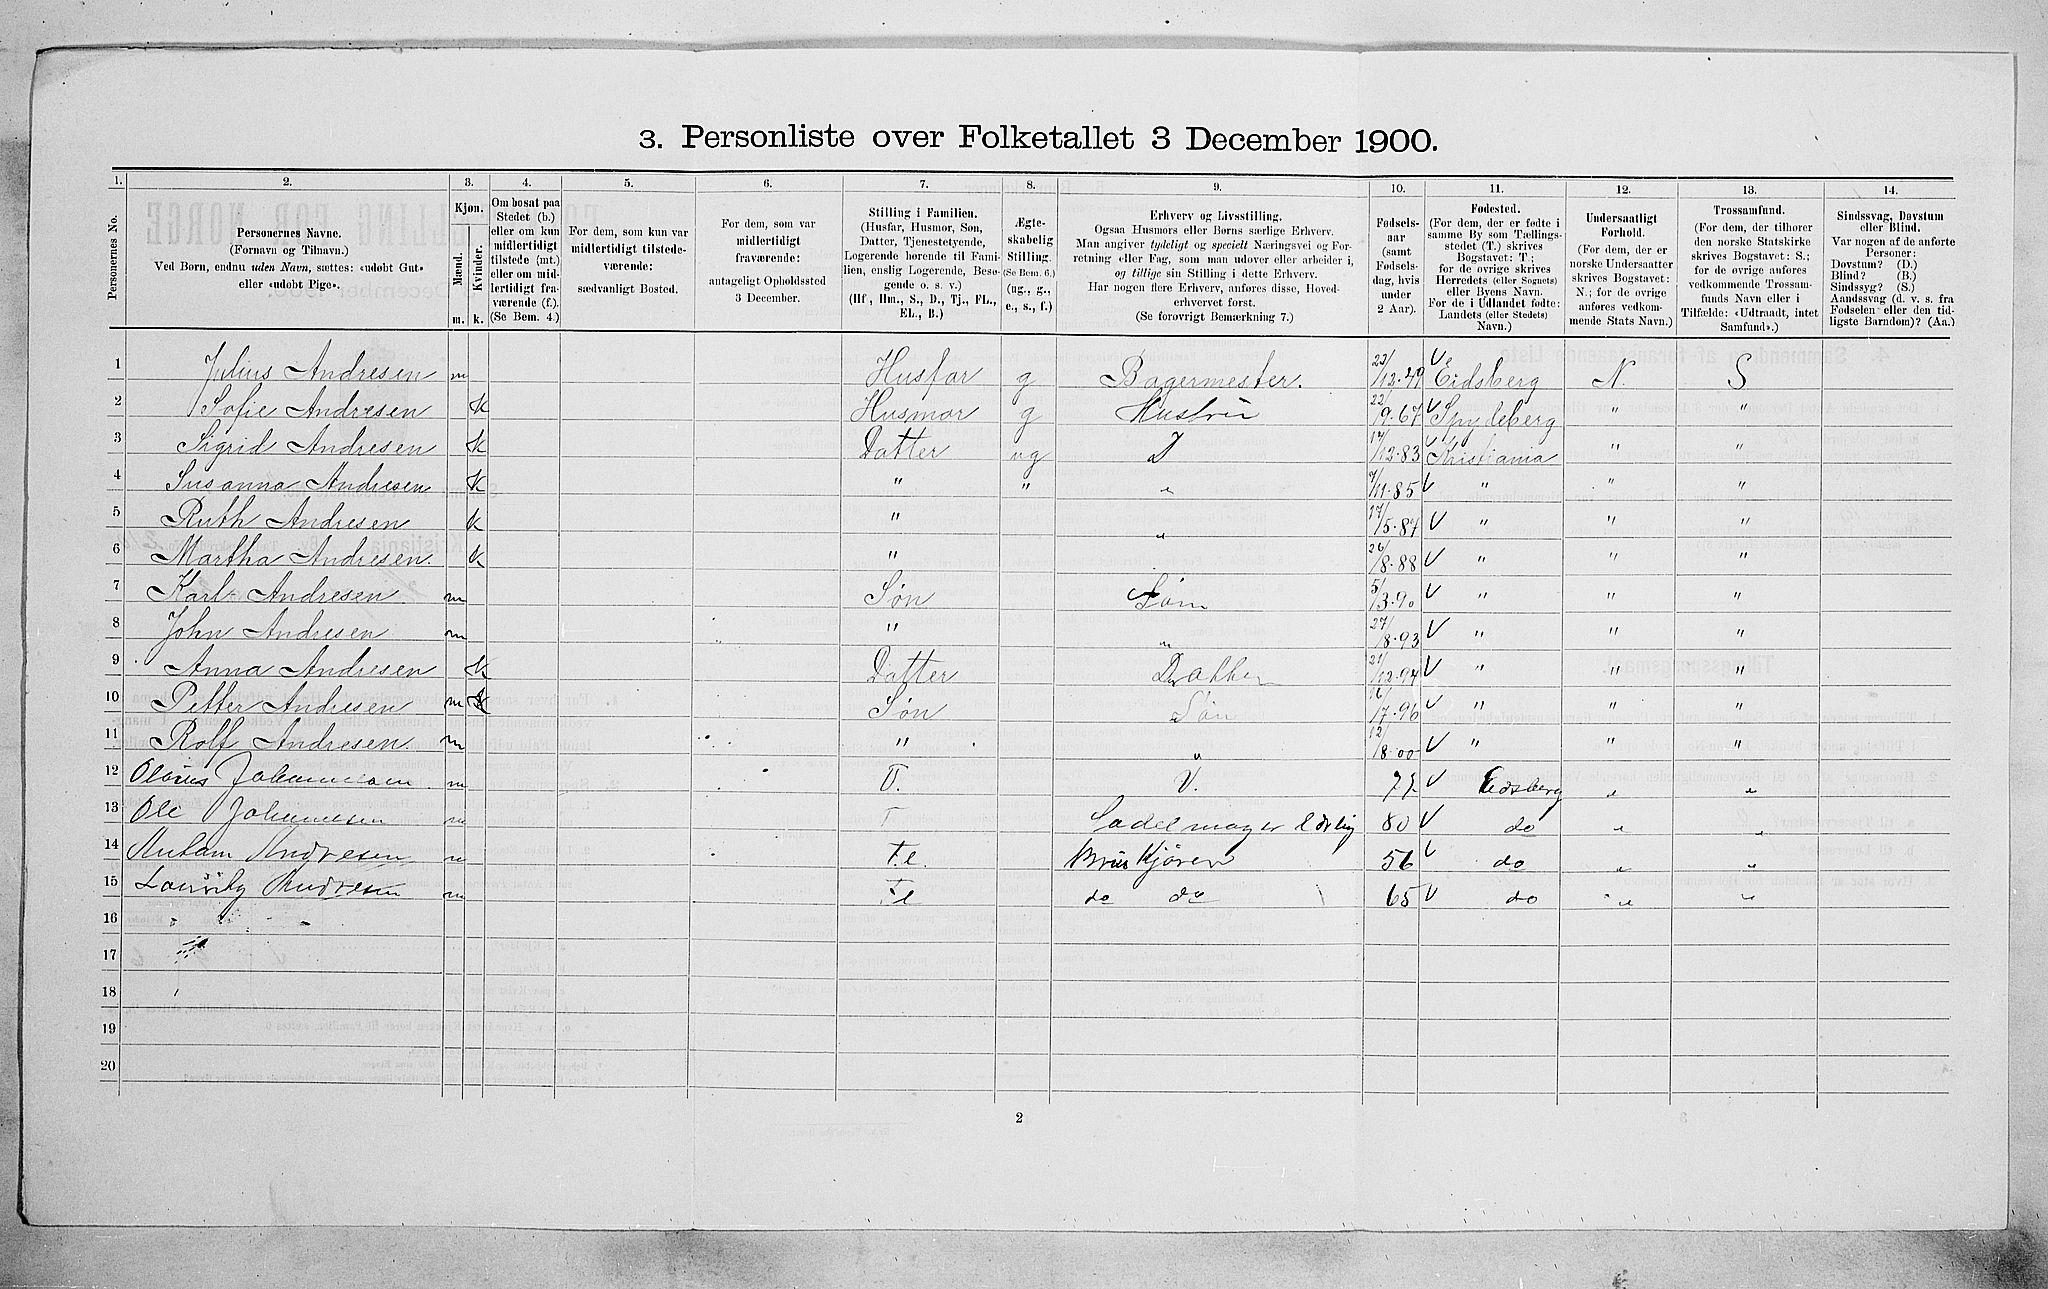 3. Personliste over Folketallet 3 December 1900.
1. 2. 3. 4. 5. 6. 7. 8. 9. 10. 11. 12. 13. 14.
Personernes No.
Personernes Navne.
(Fornavn og Tilnavn.)
Ved Børn, endnu uden Navn, sættes: «udøbt Gut»
eller «udøbt Pige».
Kjøn.
Mænd.
Kvinder.
m. k.
Om bosat paa
Stedet (b.)
eller om kun
midlertidigt
tilstede (mt.)
eller om mid-
lertidigt fra-
værende (f.).
(Se Bem. 4.)
For dem, som kun var
midlertidigt tilstede-
værende:
sædvanligt Bosted.
For dem, som var
midlertidigt
fraværende:
antageligt Opholdssted
3 December.
Stilling i Familien.
(Husfar, Husmor, Søn,
Datter, Tjenestetyende,
Logerende hørende til Fami-
lien, enslig Logerende, Besø-
gende o. s. v.)
(Hf, Hm., S., D., Tj., FL.,
EL., B.)
Ægte-
skabelig
Stilling.
(Se Bem. 6.)
(ug., g.,
e., s., f.)
Erhverv og Livsstilling.
Ogsaa Husmors eller Børns særlige Erhverv.
Man angiver tydeligt og specielt Næringsvei og For-
retning eller Fag, som man udøver eller arbeider i,
og tillige sin Stilling i dette Erhverv.
Har nogen flere Erhverv, anføres disse, Hoved-
erhvervet først.
(Se forøvrigt Bemærkning 7.)
Fødsels-
aar
(samt
Fødsels-
dag, hvis
under
2 Aar).
Fødested.
(For dem, der er fødte i
samme By som Tællings-
stedet (T.) skrives
Bogstavet: T.;
for de øvrige skrives
Herredets (eller Sognets)
eller Byens Navn.
For de i Udlandet fødte:
Landets (eller Stedets)
Navn.)
Undersaatligt
Forhold.
(For dem, der er
norske Undersaatter
skrives Bogstavet:
N.; for de øvrige
anføres vedkom-
mende Stats Navn.)
Trossamfund.
(For dem, der tilhører
den norske Statskirke
skrives Bogstavet: S.;
for de øvrige anføres
vedkommende Trossam-
funds Navn eller i
Tilfælde: «Udtraadt, intet
Samfund».)
Sindssvag, Døvstum
eller Blind.
Var nogen af de anførte
Personer:
Døvstum? (D.)
Blind? (B.)
Sindssyg? (S.)
Aandssvag (d. v. s. fra
Fødselen eller den tid-
ligste Barndom)? (Aa.)
1 Julius Andresen m Husfar g Bagermester. 12.49 Eidsberg N. S
2 Sofie Andresen K Husmor g Hustru 22/9.67 Spydeberg " "
3 Sigrid Andresen K Datter ug D 17/12.83 Kristiania " "
4 Susanna Andresen K " " " 11.85 " " "
5 Ruth Andresen K " " 17/5.87 " " "
6 Martha Andresen. K " 26/8.88 " " "
7 Karl Andresen m Søn Søn 5/3.90 " " "
8 John Andresen m " " 27/8.93 " " "
9 Anna Andresen K Datter Datter 21/12.94 " " "
10 Petter Andresen m Søn Søn 16/7.96 " " "
11 Rolf Andresen. m " " 12/8.00 " " "
12 Johannesen m Eidsberg " "
13 Ole Johannesen m Sadelmager 80 do " "
14 Andresen m Kjører 56 do " "
15 Andresen m do do 65 do " "
16
17
18
19
20
2